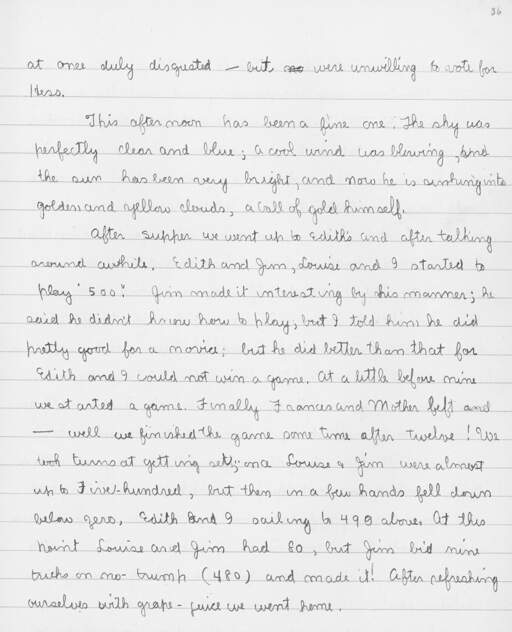 36
at once duly disgusted — but were unwilling to vote for
Hess.
This afternoon has been a fine one. The sky was
perfectly clear and blue; a cool wind was blowing, and
the sun has been very bright, and now he is sinking into
golden and yellow clouds, a ball of gold himself.
After supper we went up to Edith's and after talking
around awhile, Edith and Jim, Louise and I started to
play "500". Jim made it interesting by his manner; he
said he didn't know how to play, but I told him he did
pretty good for a novice; but he did better than that for
Edith and I could not win a game. At a little before nine
we started a game. Finally Frances and Mother left and
— well we finished the game some time after twelve! We
took turns at getting set; once Louise & Jim were almost
up to Five-hundred, but then in a few hands fell down
below zero, Edith and I sailing to 490 above. At this
point Louise and Jim had 80, but Jim bid nine
tricks on no-trump (480) and made it! After refreshing
ourselves with grape-juice we went home.